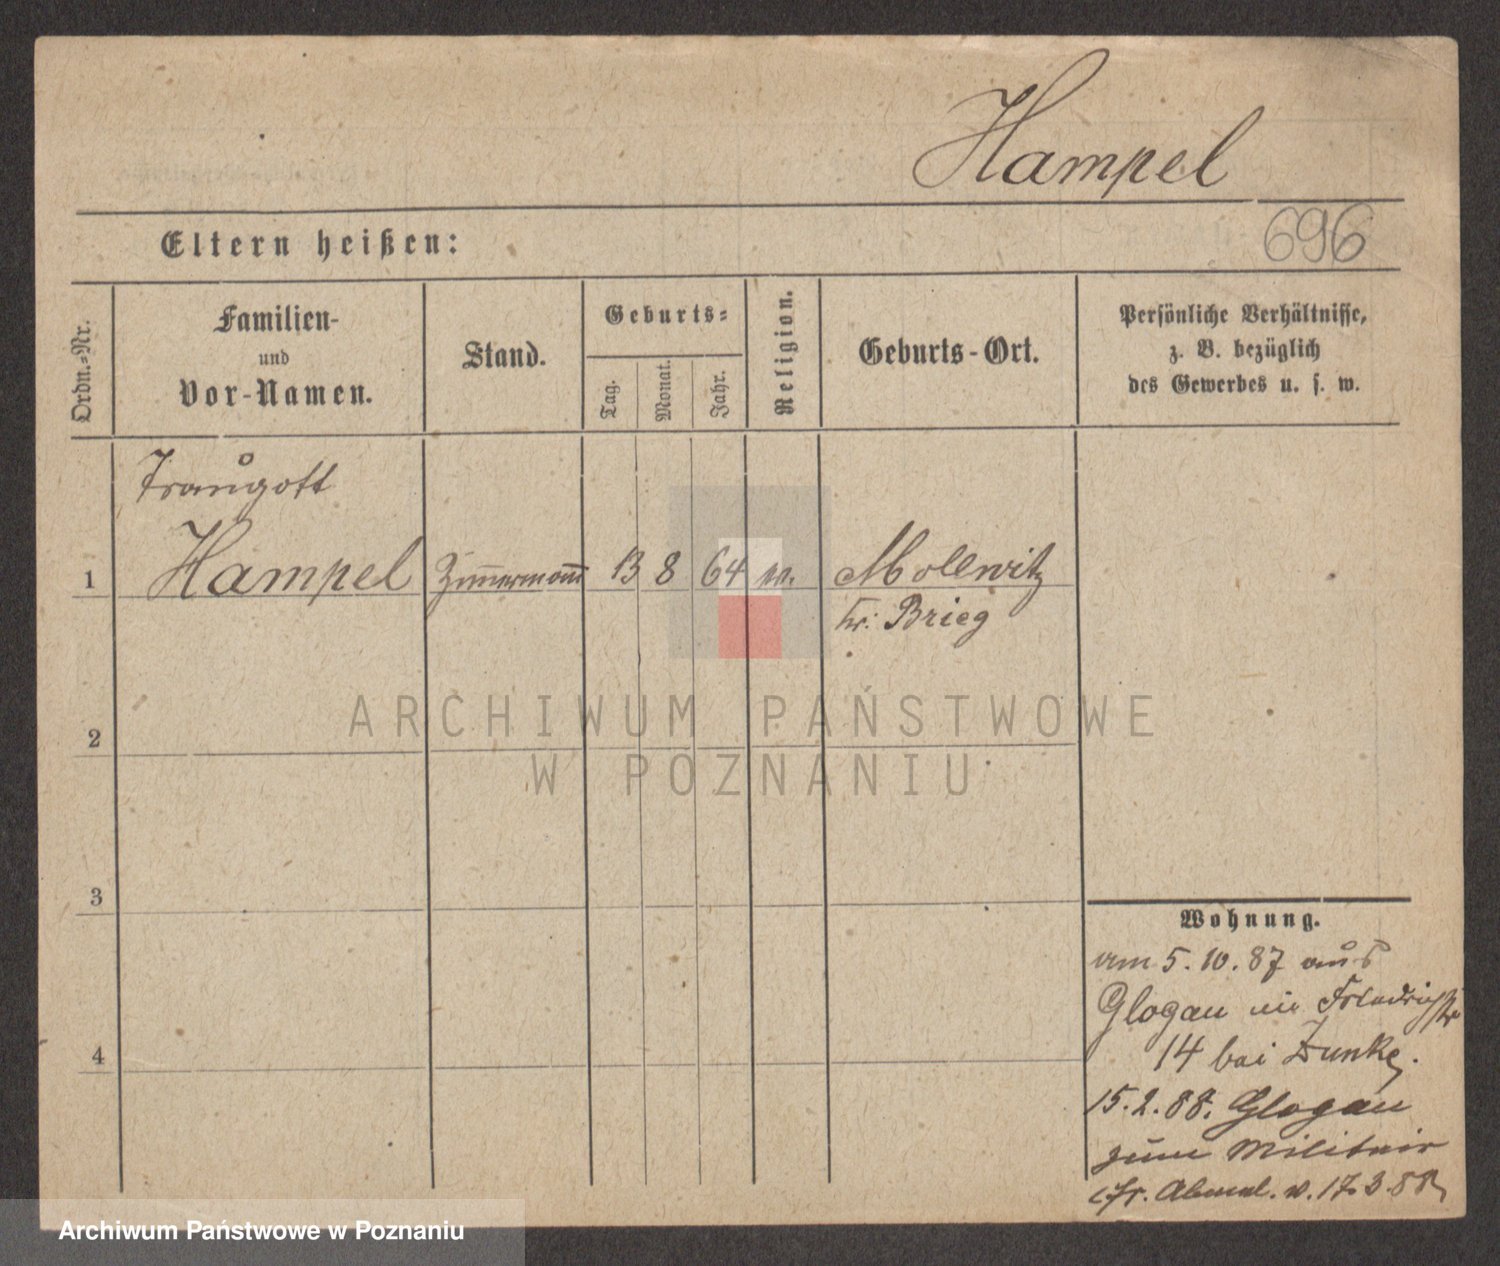 Hampel
696
Eltern heißen:
Ordn.-Nr.
Familien-
und
Vor-Namen.
Stand.
Geburts-
Tag.
Monat.
Jahr.
Religion.
Geburts-Ort.
Persönliche Verhältnisse,
z. B. bezüglich
des Gewerbes u. s. w.
Traugott
1 Hampel Zim̅erman̅ 13 8 64 Mollwitz
Kr: Brieg
ARCHIWUM PAŃSTWOWE
W POZNANIU
2
3
4
Wohnung.
am 5.10.87 aus
Glogau in Friedrichstr
14 bei Zunke.
15.2.88. Glogau
zum Militair
Abmel. v. 17.3.88
Archiwum Państwowe w Poznaniu